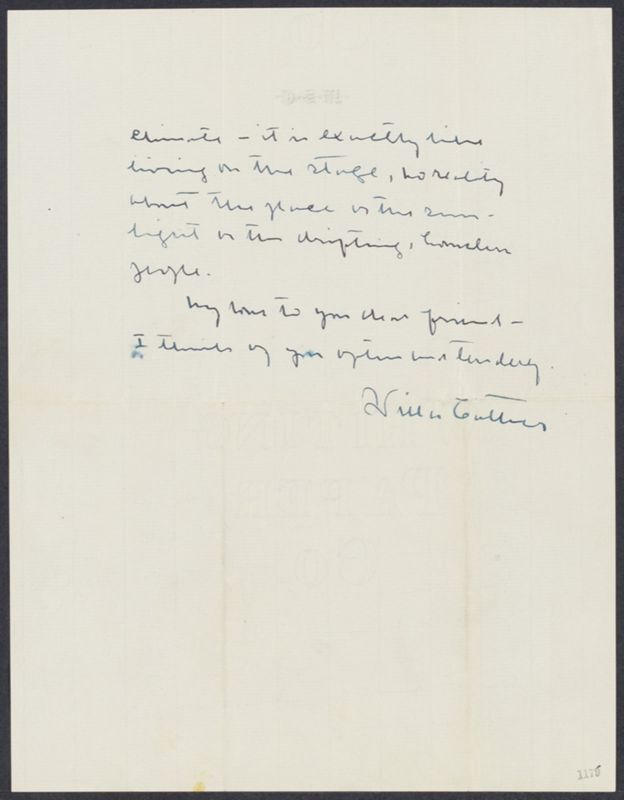 climate – it is exactly like
living on the stage, no reality
about the place or the sun-
light or the drifting, homeless
people.
My love to you dear friend –
I think of you often and tenderly.
Willa Cather
1175